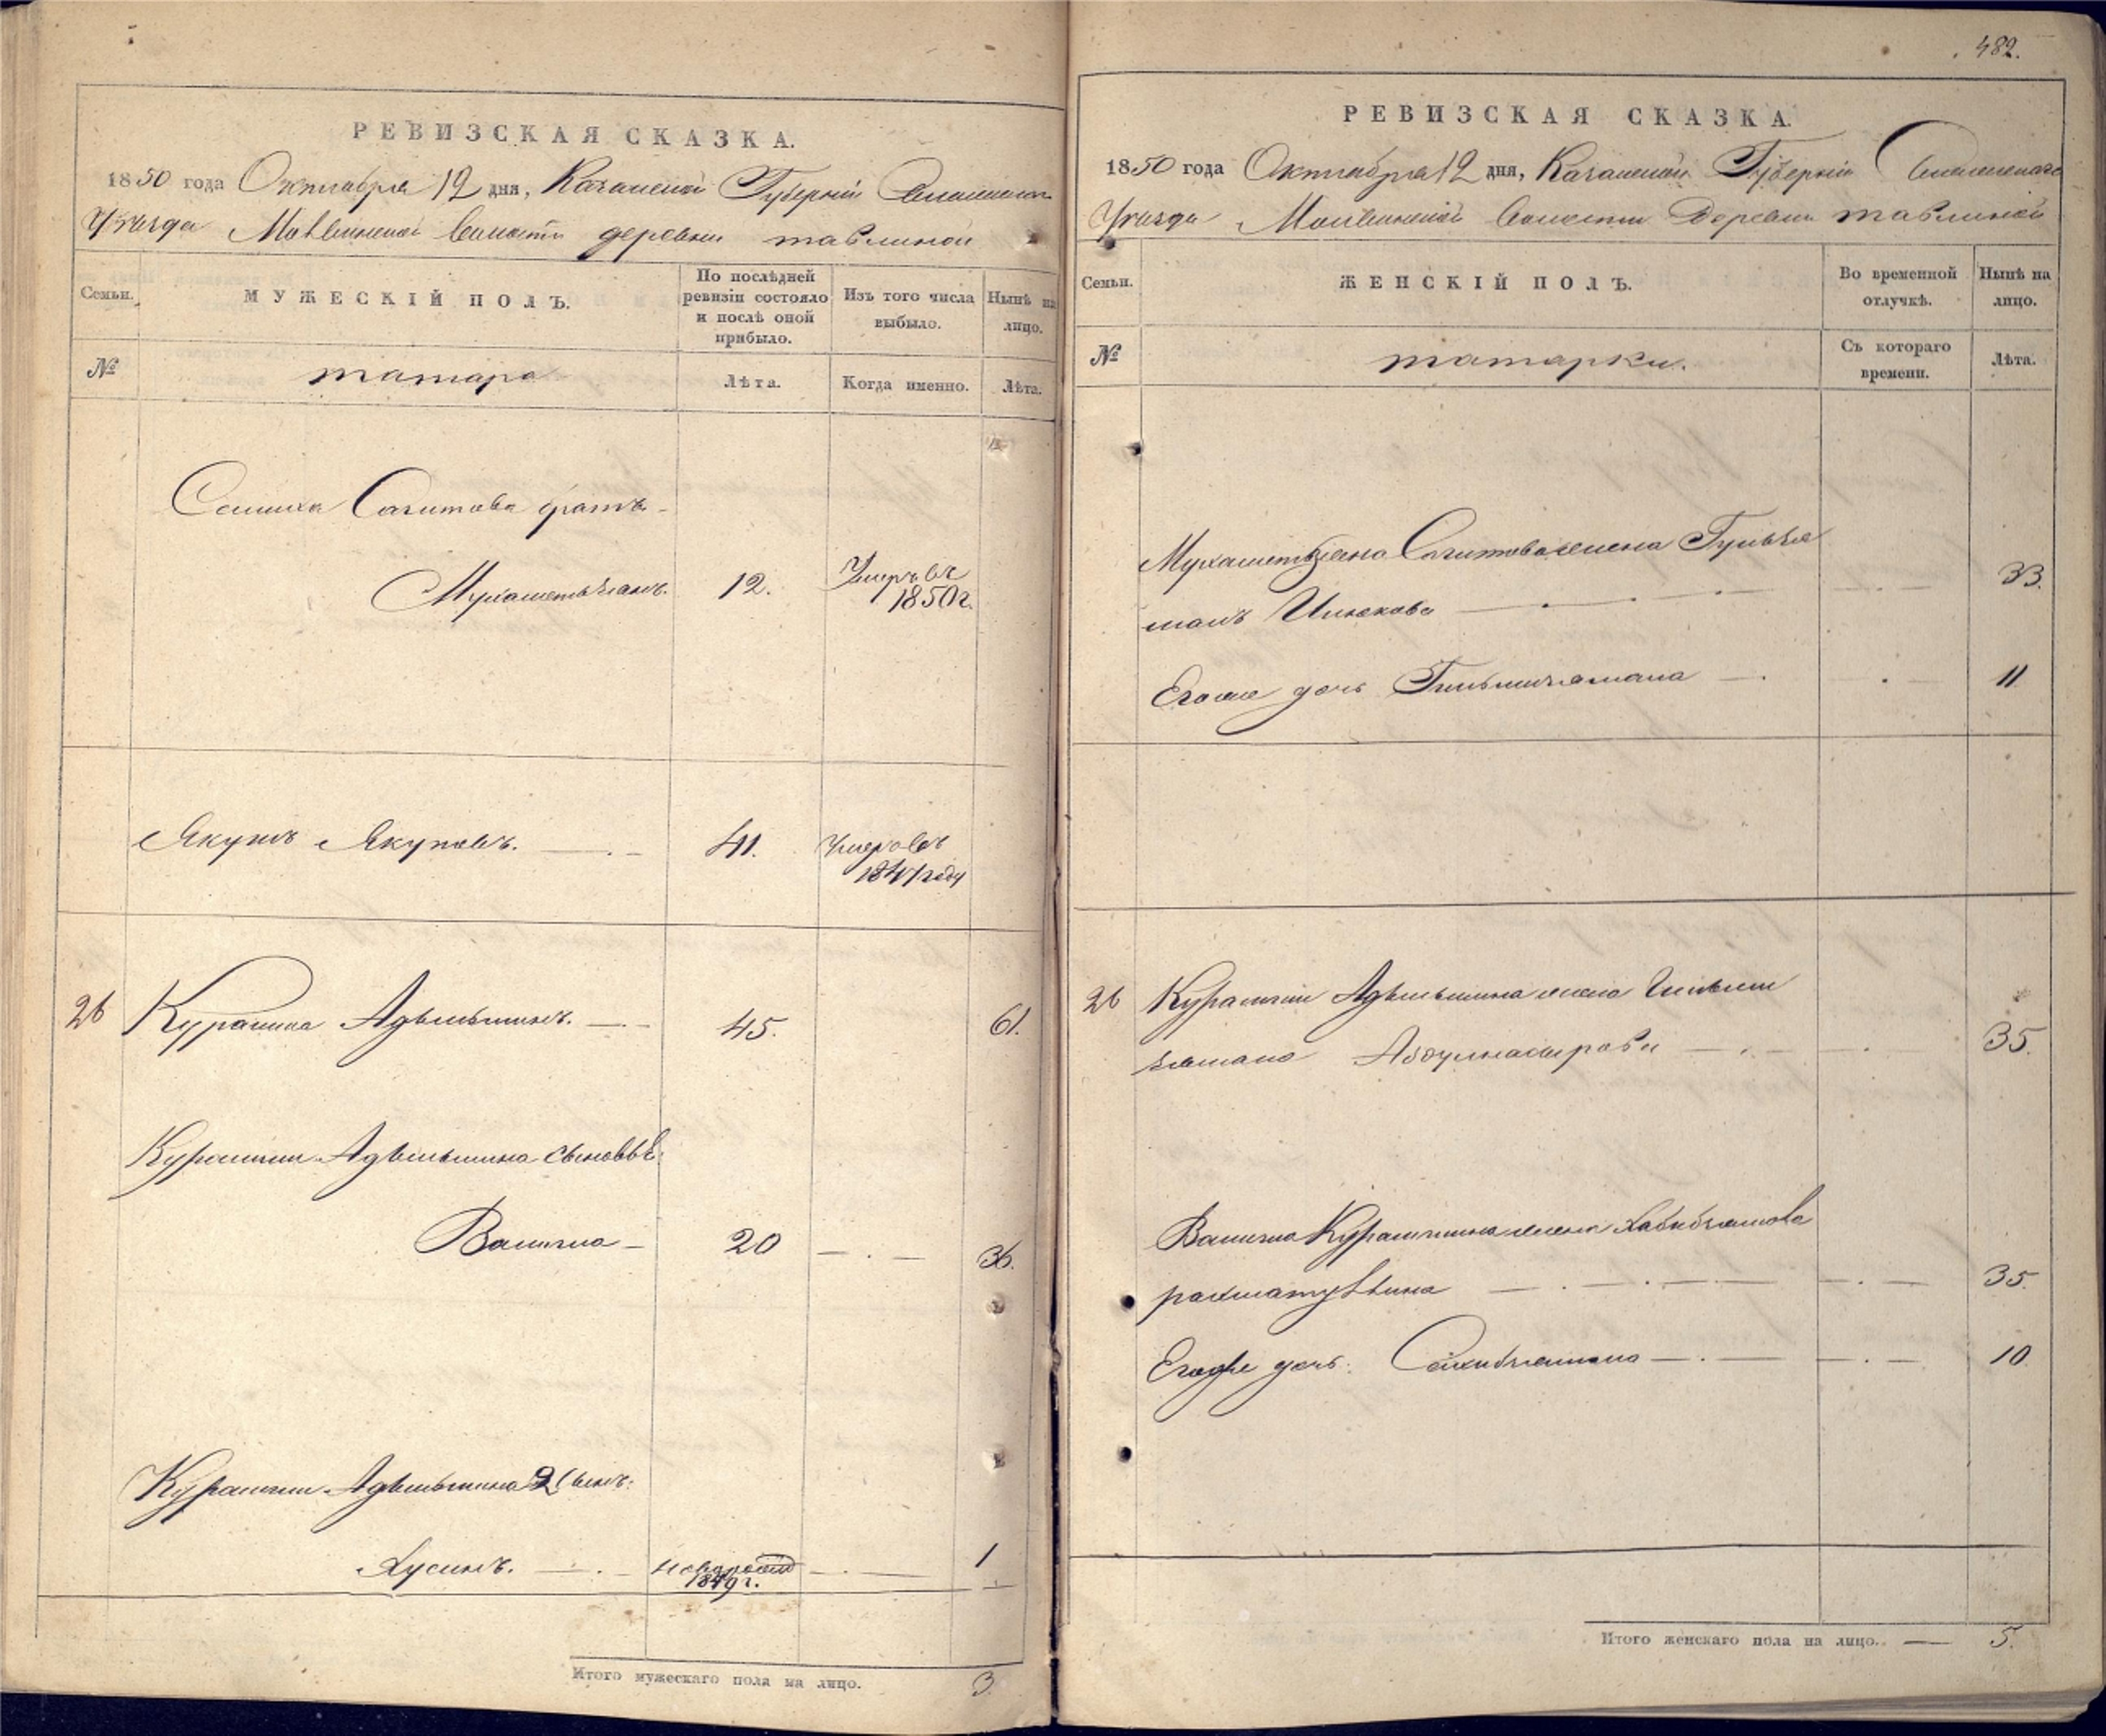 РЕВИЗСКАЯ СКАЗКА.
1850 года Октября 12 дня, Казанской Губернiи Спасскаго
Уѣзда волости деревни тавлиной
Семьи.
МУЖЕСКІЙ ПОЛЪ.
По послѣдней
ревизіи состояло
и послѣ оной
прибыло.
Изъ того числа
выбыло.
Нынѣ на
лицо.
№
татара
Лѣта.
Когда именно.
Лѣта.
Салиха Сагитова братъ
Мухаметьзянъ. 12. Умеръ въ
1850 г.
Якупъ Якуповъ. 41. Умеръ въ
1847 году
26 Курамша Адѣльшинъ. 45. 61.
Курамши Адѣльшина сыновья
Валиша 20 36.
Курамши Адѣльшина 2 сынъ:
Хусинъ. новорожд 1
1849 г.
Итого мужескаго пола на лицо. 3.
482.
РЕВИЗСКАЯ СКАЗКА.
1850 года Октября 12 дня, Казанской Губерніи Спасскаго
Уѣзда волости Деревни тавлиной
Семьи.
ЖЕНСКІЙ ПОЛЪ.
Во временной
отлучкѣ.
Нынѣ на
лицо.
№
татарки.
Съ котораго
времени.
Лѣта.
Мухаметьзяна Сагитова жена Гульзя
33.
Его же дочь 11
26 Курамши Адѣльшина жена Гильми
зямана Абдулнасырова 35.
Курамшина жена Хабибзямова
рахматуллина 35.
Его же дочь: Сахибзямана 10.
Итого женскаго пола на лицо. 5.